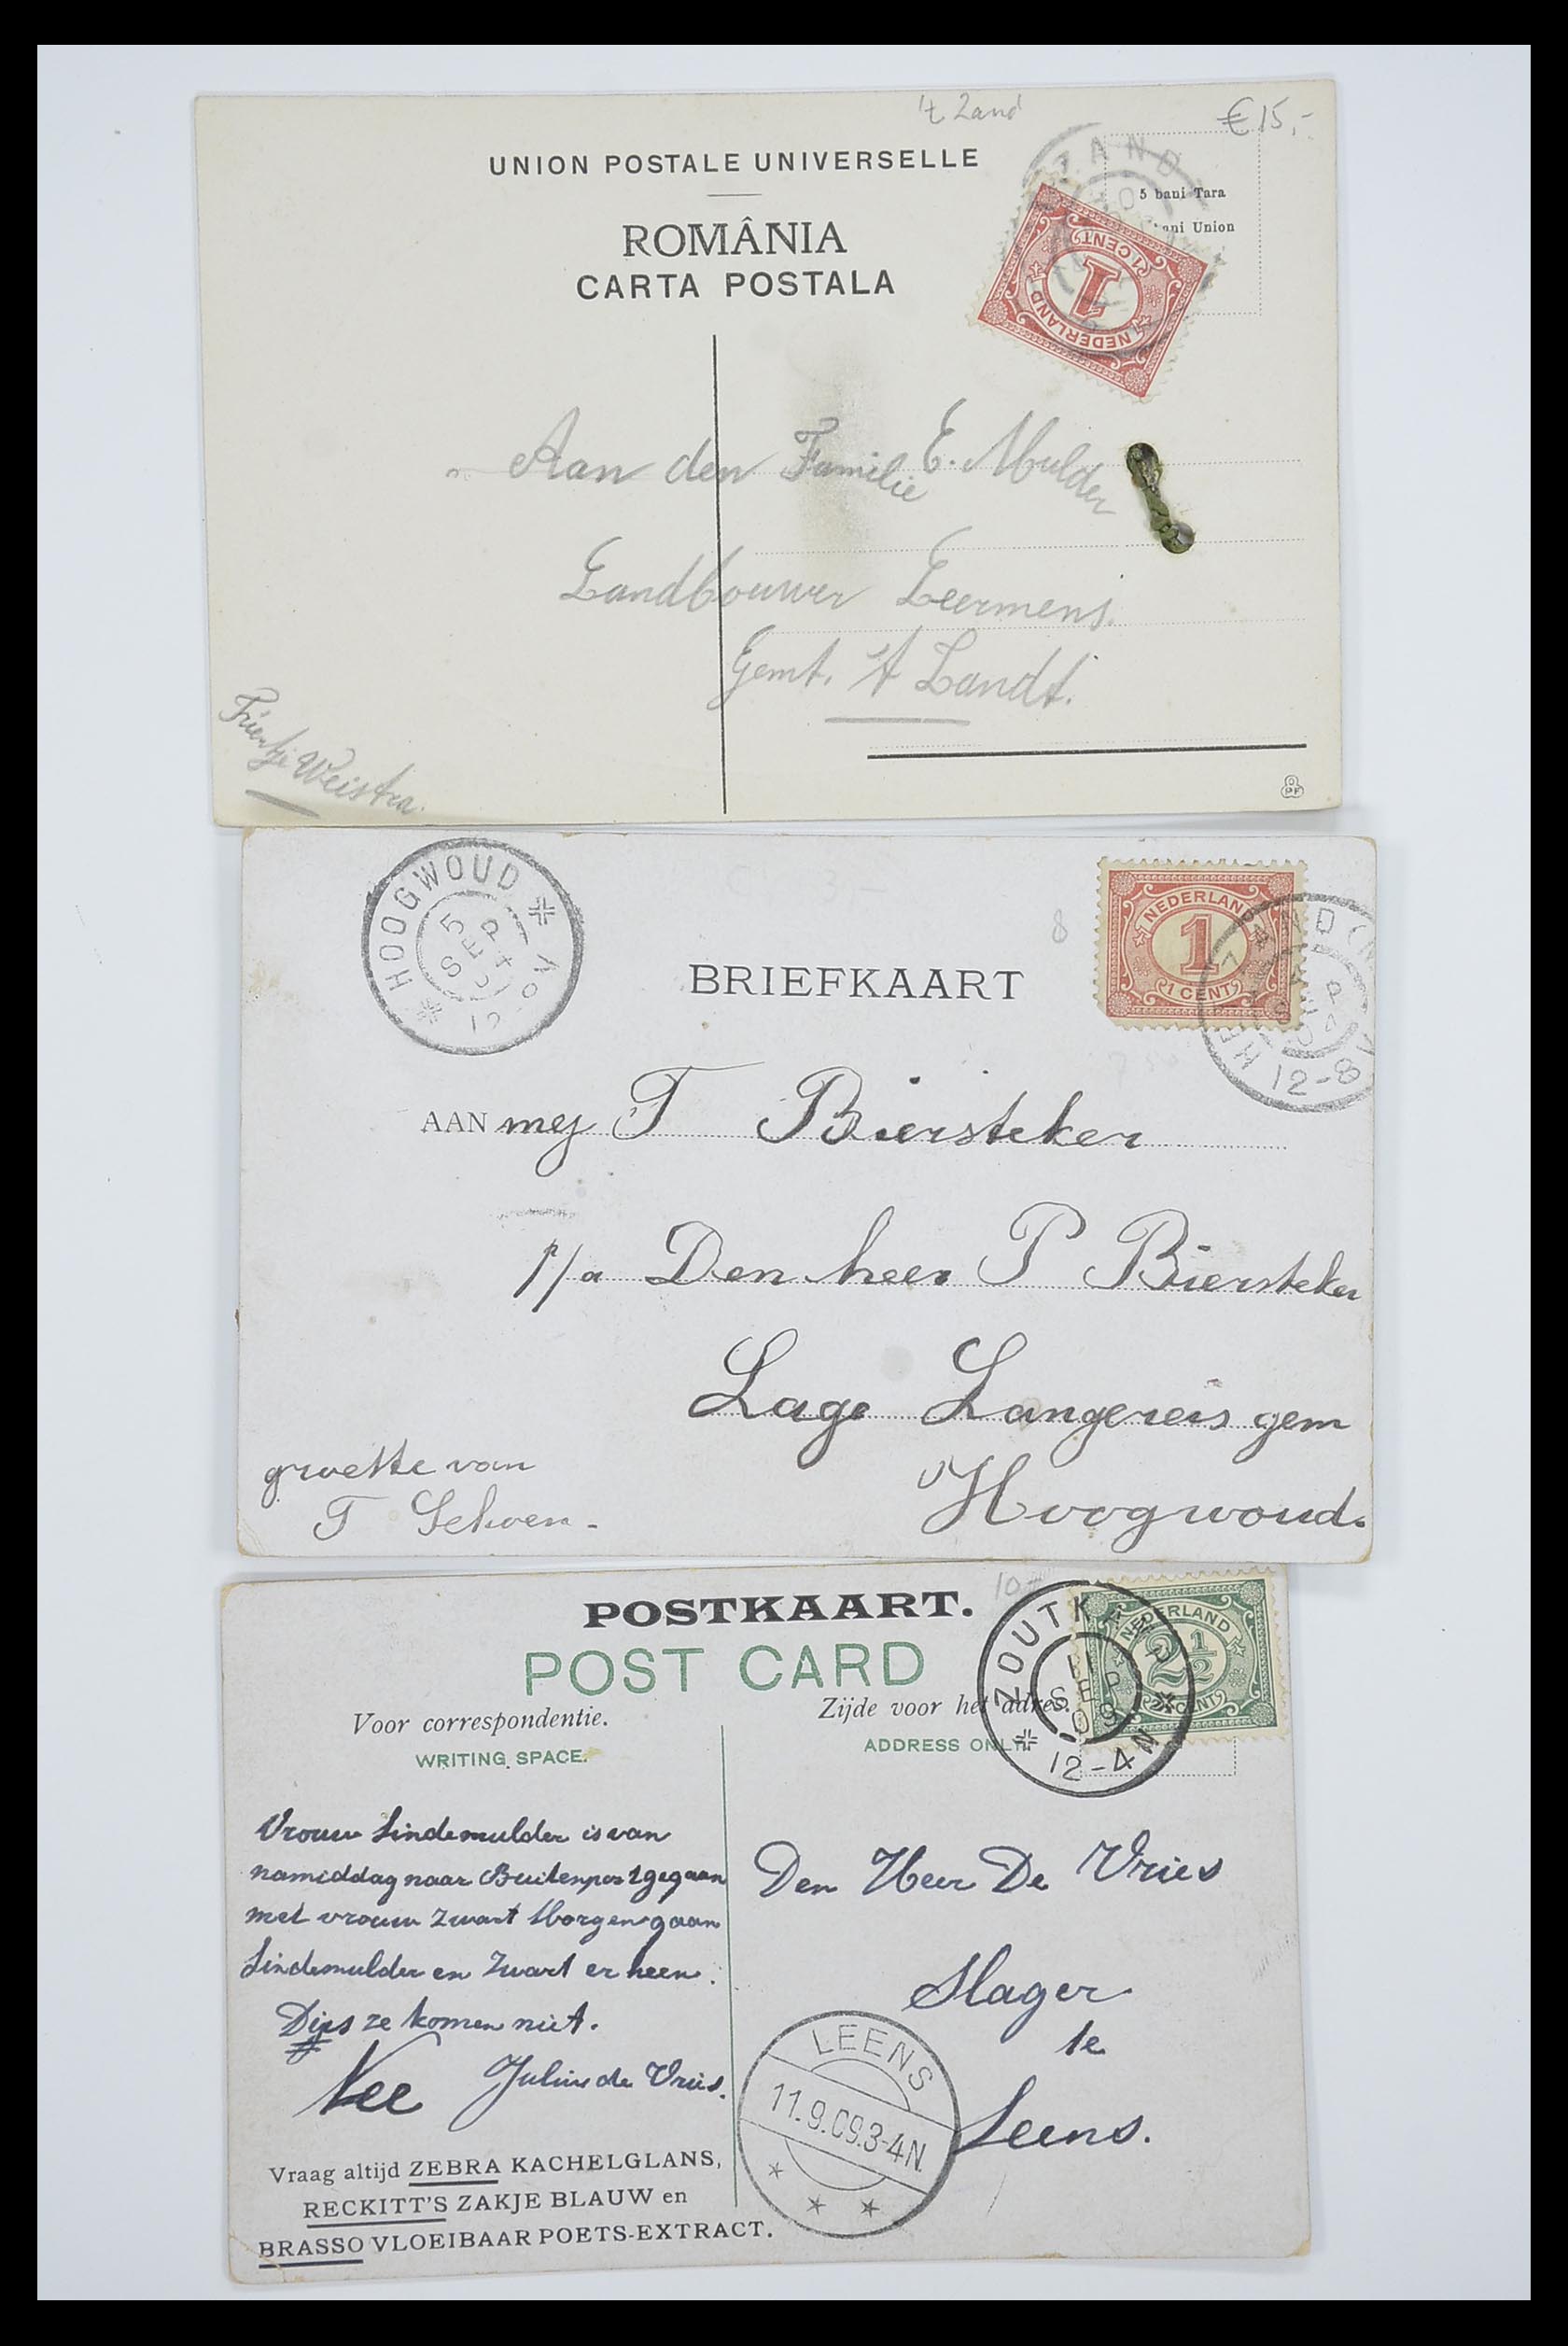 't Zand
€ 15,-
UNION POSTALE UNIVERSELLE
ROMÂNIA
CARTA POSTALA
ZAND
5 bani Tara
bani Union
NEDERLAND
1
1 CENT
Aan den Familie E. Mulder
Landbouwer Leermens.
Gemt. 't Zandt.
Trientje Weistra.
PF
HOOGWOUD
5 SEP 04
12-
8
NEDERLAND
1
1 CENT
12-8
BRIEFKAART
AAN mej T Biersteker
p/a Den heer P Biersteker
Lage Langereis gem
Hoogwoud.
groette van
T Schoen.
POSTKAART.
POST CARD
10
ZOUTKAMP
11 SEP 09
12-4N
NEDERLAND
2½
CENT
Voor correspondentie.
Zijde voor het adres.
WRITING SPACE.
ADDRESS ONLY
Vrouw Lindemulder is van
namiddag naar Buitenpost gegaan
met vrouw Zwart Morgen gaan
Lindemulder en Zwart er heen.
Dus ze komen niet.
Vee Julius de Vries.
Den Heer De Vries
Slager
te
Leens.
LEENS
11.9.09.3-4N.
Vraag altijd ZEBRA KACHELGLANS,
RECKITT'S ZAKJE BLAUW en
BRASSO VLOEIBAAR POETS-EXTRACT.